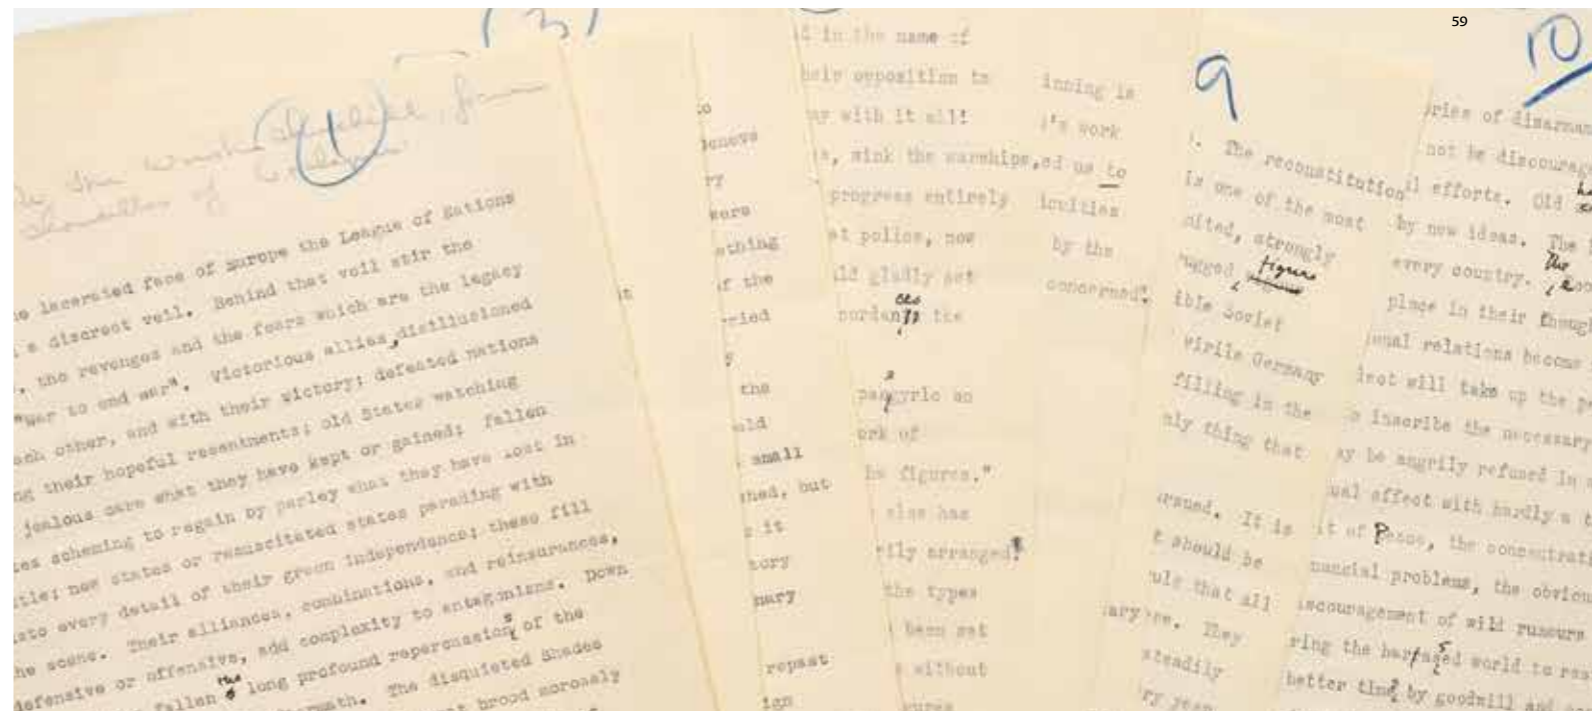 59
(1)
e lacerated face of Europe the League of Nations
a discreet veil. Behind that veil stir the
, the revenges and the fears which are the legacy
"War to end war". Victorious allies, disillusioned
ach other, and with their victory; defeated nations
ng their hopeful resentments; old States watching
jealous care what they have kept or gained; fallen
tes scheming to regain by parley what they have lost in
ttle; new states or resuscitated states parading with
sto every detail of their green independence; these fill
he scene. Their alliances, combinations, and reinsurances,
defensive or offensive, add complexity to antagonisms. Down
fallen the long profound repercussions of the
ermath. The disquieted Shades
brood morosely
(3)
to
eneva
ry
wers
ething
f the
ried
y
the
old
small
shed, but
e it
tory
nary
repast
ign
d in the name of
heir opposition to
ay with it all!
s, sink the warships,
progress entirely
et police, now
ld gladly act
the
an
ork of
he figures."
else has
rily arranged!
the types
been set
s without
inning is
's work
ed us to
iculties
by the
concerned".
9
. The reconstitution
is one of the most
nited, strongly
rugged figure
ible Soviet
virile Germany
filling in the
nly thing that
ursued. It is
t should be
ule that all
. They
steadily
ry year
10
ories of disarmam
not be discourag
il efforts. Old
by new ideas. The
every country. The
place in their though
onal relations become
lect will take up the
o inscribe the necessary
ay be angrily refused in
ual effect with hardly a
it of Peace, the concentrati
nancial problems, the obviou
scouragement of wild rumours
ring the harassed world to
better time by goodwill and